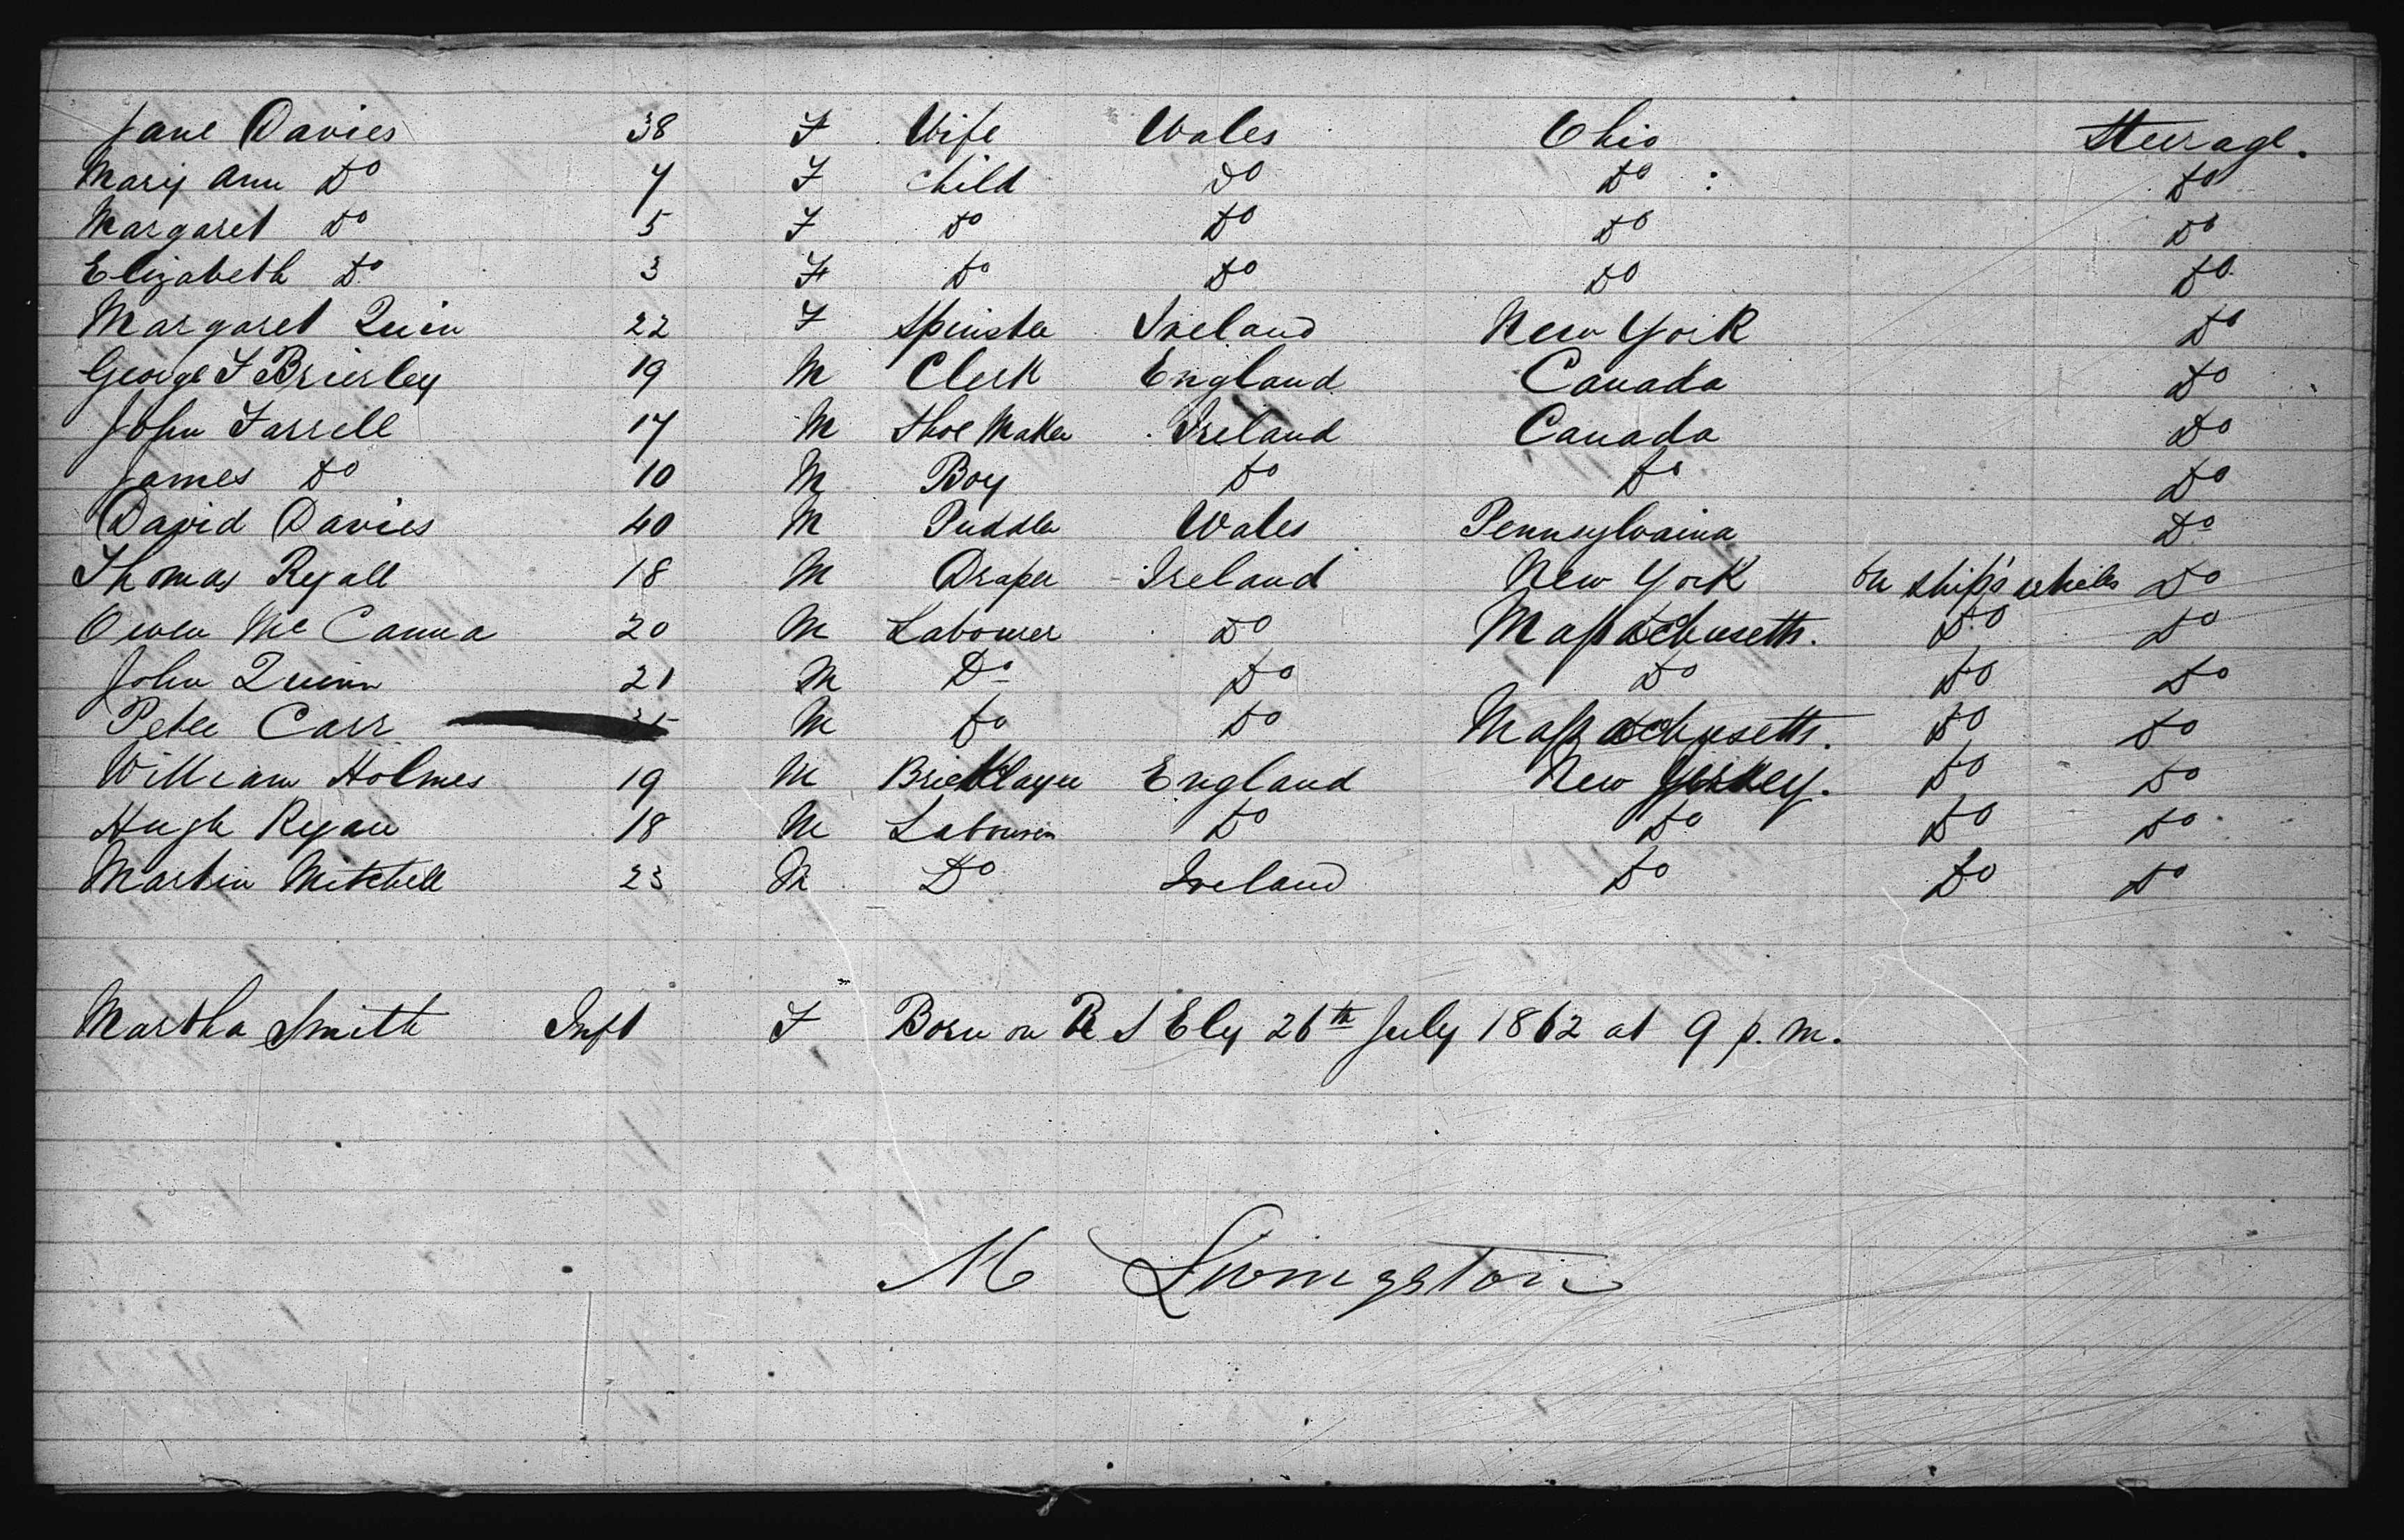 Jane Davies 38 F Wife Wales Ohio Steerage.
Mary Ann Do 7 F Child Do Do Do
Margaret Do 5 F Do Do Do Do
Elizabeth Do 3 F Do Do Do Do
Margaret Quin 22 F Spinster Ireland New York Do
George F Brierley 19 M Clerk England Canada Do
John Farrell 17 M Shoe Maker Ireland Canada Do
James Do 10 M Boy Do Do Do
David Davies 40 M Puddler Wales Pennsylvaina Do
Thomas Ryall 18 M Draper Ireland New York on ship's Do
Owen Mc Canna 20 M Labourer Do Massachusetts. Do Do
John Quinn 21 M Do Do Do Do Do
Peter Carr M Do Do Massachusetts. Do Do
William Holmes 19 M Bricklayer England New Jersey. Do Do
Hugh Ryan 18 M Labourer Do Do Do Do
Martin Mitchell 23 M Do Ireland Do Do Do
Martha Smith Inft F Born on R S Ely 26th July 1862 at 9 p.m.
M Livingston